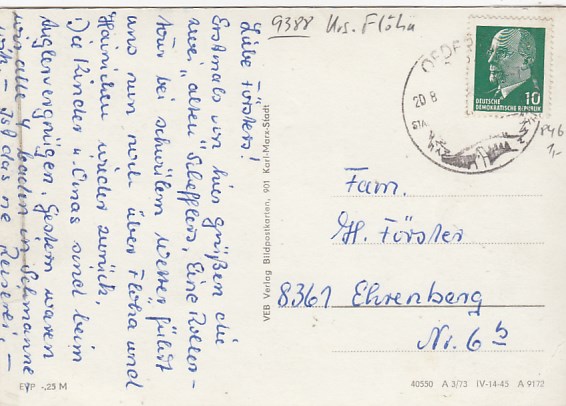 9388 Krs. Flöha
Liebe Försters!
Erstmals von hier grüßen die
zwei "alten" Schefflers. Eine Roller-
tour bei schwülem Wetter führt
uns nun noch über Flöha und
Hainichen wieder zurück.
Die Kinder u. Omas sind beim
Anglervergnügen. Gestern waren
wir alle 4 baden in
Ist das ne Reiserei. –
EVP -,25 M
VEB Verlag Bildpostkarten, 901 Karl-Marx-Stadt
20.8
DEUTSCHE
DEMOKRATISCHE REPUBLIK
10
P46
1,-
Fam.
H. Förster
8361 Ehrenberg
Nr. 6 b
40550 A 3/73 IV-14-45 A 9172